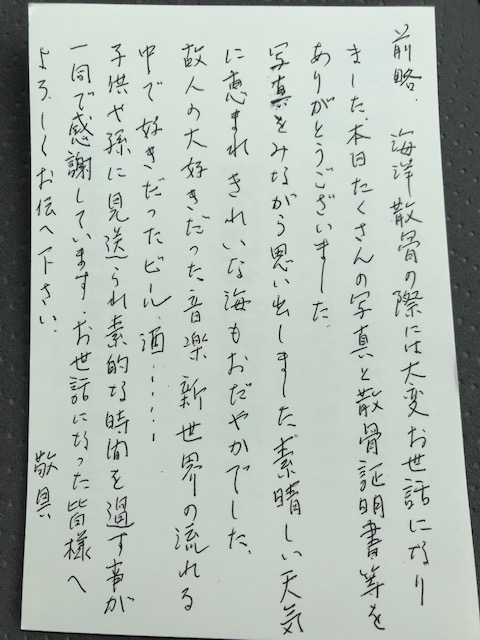 前略、海洋散骨の際には大変お世話になり
ました、本日たくさんの写真と散骨証明書等を
ありがとうございました、
写真をみながら思い出しました素晴しい天気
に恵まれきれいな海もおだやかでした、
故人の大好きだった音楽 新世界の流れる
中で好きだったビール、酒……
子供や孫に見送られ素的な時間を過す事が
一同で感謝しています、お世話になった皆様へ
よろしくお伝へ下さい、
敬具